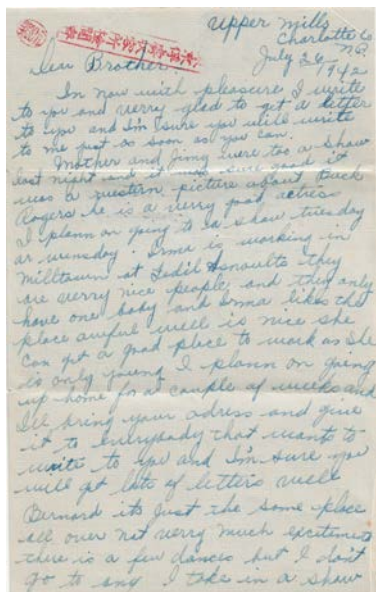 Upper Mills
Charlotte Co
N.B.
July 26/1942
Dear Brother.
In now with pleasure I write
to you and verry glad to get a letter
to you and I'm sure you will write
to me just as soon as you can.
Mother and Jimy were too a show
last night and it was sure good it
was a western picture about Buck
Rogers he is a verry good actress
I plann on going to a show tuesday
or wensday. Irma is working in
Milltown at they
are verry nice people and they only
have one baby and Irma likes the
place awful well is nice she
can get a good place to work as she
is only young I plann on going
up home for a couple of weeks and
I'll bring your adress and give
it to everybody that wants to
write to you and I'm sure you
will get lots of letters well
Bernard its just the same place
all over not verry much excitement
there is a few dances but I don't
go to any I take in a show